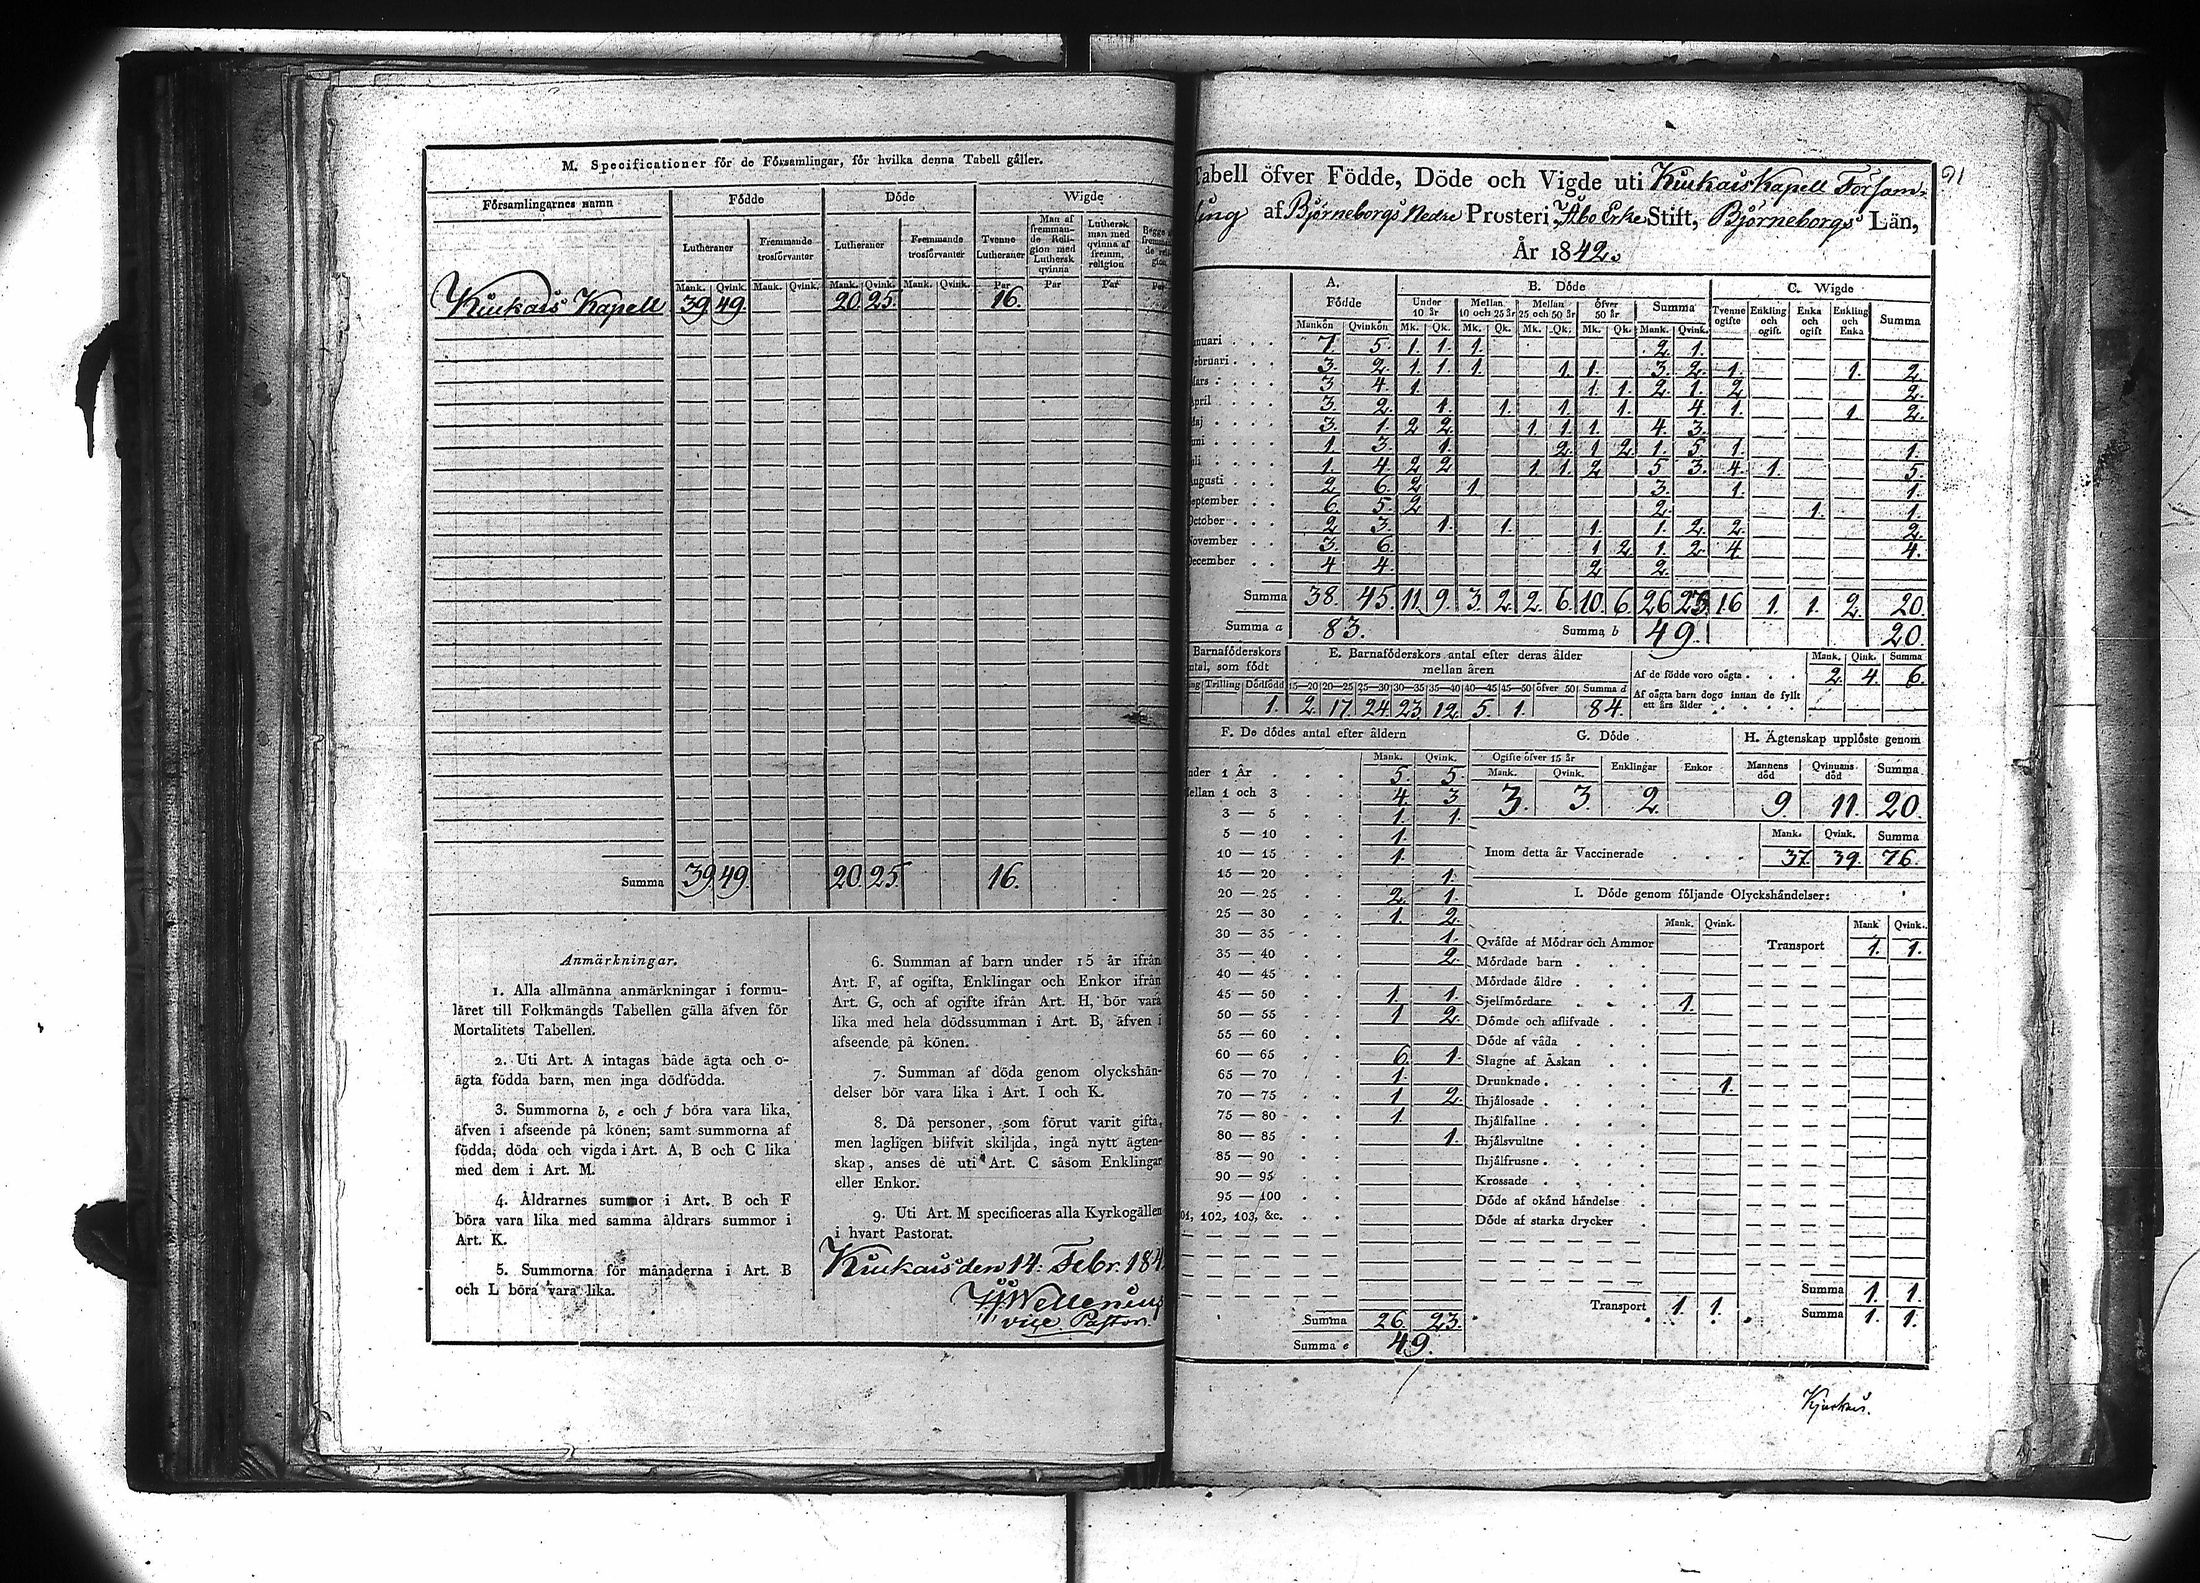 M. Specificationer för de Församlingar, för hvilka denna Tabell gäller.
Församlingarnes namn Födde Döde Wigde
Lutheraner Fremmande trosförvanter Lutheraner Fremmande trosförvanter Tvenne Lutheraner Man af fremmande Religion med Luthersk qvinna Luthersk man med qvinna af fremm. religion Begge
Mank. Qvink. Mank. Qvink. Mank. Qvink. Mank. Qvink. Par Par Par
Kiukais Kapell 39. 49. 20. 25. 16.
Summa 39. 49. 20. 25. 16.
Anmärkningar.
1. Alla allmänna anmärkningar i formu-
läret till Folkmängds Tabellen gälla äfven för
Mortalitets Tabellen.
2. Uti Art. A intagas både ägta och o-
ägta födda barn, men inga dödfödda.
3. Summorna b, e och f böra vara lika,
äfven i afseende på könen; samt summorna af
födda, döda och vigda i Art. A, B och C lika
med dem i Art. M.
4. Åldrarnes summor i Art. B och F
böra vara lika med samma åldrars summor i
Art. K.
5. Summorna för månaderna i Art. B
och L böra vara lika.
6. Summan af barn under 15 år ifrån
Art. F, af ogifta, Enklingar och Enkor ifrån
Art. G, och af ogifte ifrån Art. H, bör vara
lika med hela dödssumman i Art. B, äfven i
afseende på könen.
7. Summan af döda genom olyckshän-
delser bör vara lika i Art. I och K.
8. Då personer, som förut varit gifta,
men lagligen blifvit skiljda, ingå nytt ägten-
skap, anses de uti Art. C såsom Enklingar
eller Enkor.
9. Uti Art. M specificeras alla Kyrkogällen
i hvart Pastorat.
Kiukais den 14: Febr. 184
Wellenius
vice Pastor
91
Tabell öfver Födde, Döde och Vigde uti Kiukais Kapell Försam-
ling af Björneborgs Nedre Prosteri, Åbo Erke Stift, Björneborgs Län,
År 1842.
A. Födde B. Döde C. Wigde
Under 10 år Mellan 10 och 25 år Mellan 25 och 50 år öfver 50 år Summa Tvenne ogifte Enkling och ogift Enka och ogift Enkling och Enka Summa
Mankön Qvinkön Mk. Qk. Mk. Qk. Mk. Qk. Mk. Qk. Mank. Qvink.
Januari 7. 5. 1. 1. 1. 2. 1.
Februari 3. 2. 1. 1. 1. 1. 1. 3. 2. 1. 1. 2.
Mars 3 4 1. 1. 1. 2. 1. 2 2.
April 3. 2. 1. 1. 1. 1. 4. 1. 1. 2.
Maj 3. 1. 2 2. 1. 1. 1. 4. 3.
Juni 1. 3. 1. 2. 1. 2. 1. 5. 1. 1.
Juli 1. 4. 2 2 1. 1. 2. 5 3. 4. 1. 5.
Augusti 2. 6. 2 1. 3. 1. 1.
September 6. 5. 2 2. 1. 1.
October 2 3. 1. 1. 1. 1. 2. 2. 2.
November 3. 6. 1. 2. 1. 2. 4. 4.
December 4 4. 2 2.
Summa 38. 45. 11. 9. 3. 2. 2. 6. 10. 6. 26 23. 16 1. 1. 2. 20.
Summa a 83. Summa b 49. 20.
Barnaföderskors antal, som födt E. Barnaföderskors antal efter deras ålder mellan åren
Mank. Qink. Summa
Trilling Dödfödd 15—20 20—25 25—30 30—35 35—40 40—45 45—50 öfver 50 Summa d
1. 2. 17. 24. 23. 12. 5. 1. 84.
Af de födde voro oägta 2. 4. 6.
Af oägta barn dogo innan de fyllt
ett års ålder
F. De dödes antal efter åldern
Mank. Qvink.
Under 1 År 5. 5.
Mellan 1 och 3 4. 3.
3 — 5 1. 1.
5 — 10 1.
10 — 15 1.
15 — 20 1.
20 — 25 2. 1.
25 — 30 1. 2.
30 — 35 1.
35 — 40 2.
40 — 45
45 — 50 1. 1.
50 — 55 1 2.
55 — 60
60 — 65 6. 1.
65 — 70 1.
70 — 75 1 2.
75 — 80 1.
80 — 85 1.
85 — 90
90 — 95
95 — 100
101, 102, 103, &c.
Summa 26. 23.
Summa e 49.
G. Döde
Ogifte öfver 15 år Enklingar Enkor
Mank. Qvink.
3. 3 2.
H. Ägtenskap upplöste genom
Mannens död Qvinnans död Summa
9. 11. 20.
Mank. Qvink. Summa
Inom detta år Vaccinerade 37. 39. 76.
I. Döde genom följande Olyckshändelser:
Mank. Qvink. Mank Qvink.
Qväfde af Mödrar och Ammor
Mördade barn
Mördade äldre
Sjelfmördare 1.
Dömde och aflifvade
Döde af våda
Slagne af Åskan
Drunknade 1.
Ihjälosade
Ihjälfallne
Ihjälsvultne
Ihjälfrusne
Krossade
Döde af okänd händelse
Döde af starka drycker
Transport 1. 1.
Transport 1. 1.
Summa 1. 1.
Summa 1. 1.
Kjukais.